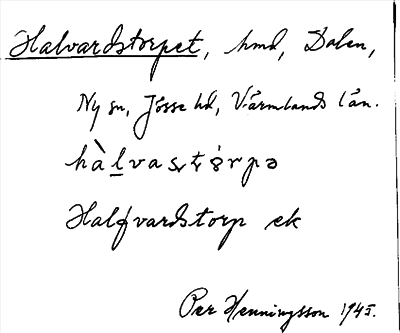 Halvardstorpet, hmd, Dalen,
Ny sn, Jösse hd, Värmlands län.
hàlvaștó̤rpə
Halfvardstorp ek
Per Henningsson 1945.